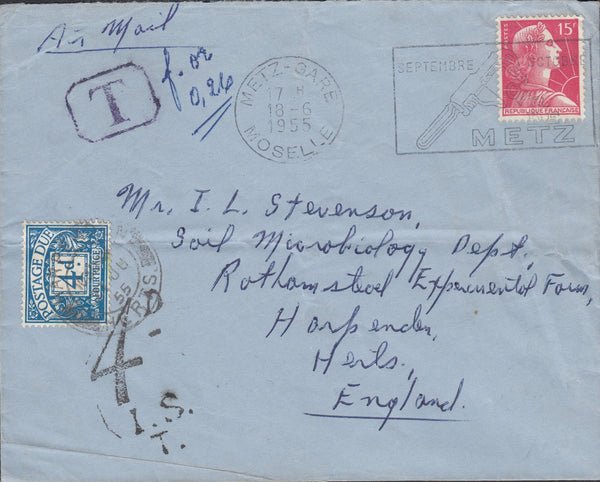 Air Mail
T
f. or
0,26
METZ-GARE
17 H
18-6
1955
MOSELLE
SEPTEMBRE
OCTOB
METZ
POSTES
15F
REPUBLIQUE FRANÇAISE
Mr. I. L. Stevenson,
Soil Microbiology Dept.,
Rothamsted Experimental Farm,
Harpenden,
Herts,
England.
POSTAGE DUE
4d.
55
RDS
4
I.S.
T.